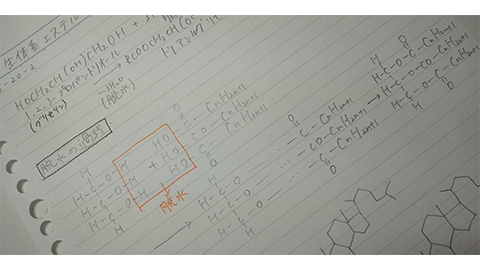 生体系エステル
-20-2
HOCH2CH(OH)CH2OH + 3
→ RCOOCH2CH(OC
-3H2O
(脱水)
1,2,3-プロパントリオール
(グリセリン)
脱水の過程
H
H-C-O-H HO
H-C-O-H + HO
H-C-O-H HO
H
脱水
O
C-CnH2n+1
CO-CnH2n+1
C-CnH2n+1
O
→
H
H-C-O
H-C-O
H-C-O
H
O
C-CnH2n+1
CO-CnH2n+1
C-CnH2n+1
O
→
H O
H-C-O-C-CnH2n+1
H-C-O-CO-CnH2n+1
H-C-O-C-CnH2n+1
H O